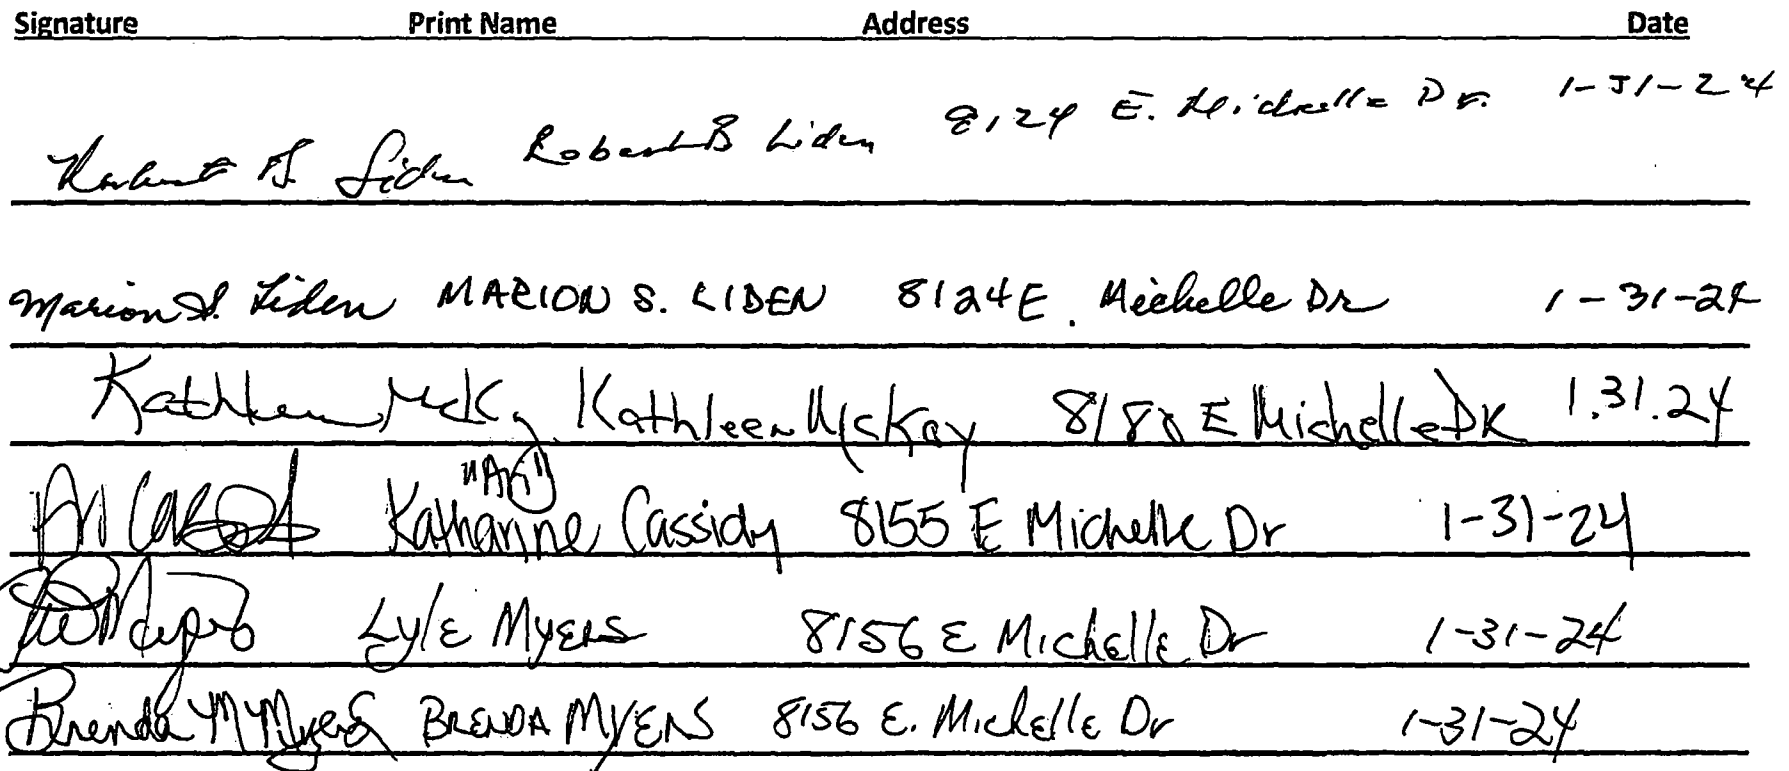 Signature Print Name Address Date
Robert B. Liden Robert B Liden 8124 E. Michelle Dr. 1-31-24
Marion S. Liden MARION S. LIDEN 8124 E. Michelle Dr 1-31-24
Kathleen McKay Kathleen McKay E Michelle DR 1.31.24
Katharine Cassidy 8155 E Michelle Dr 1-31-24
Myers Lyle Myers 8156 E Michelle Dr 1-31-24
Brenda M Myers BRENDA MYERS 8156 E. Michelle Dr 1-31-24